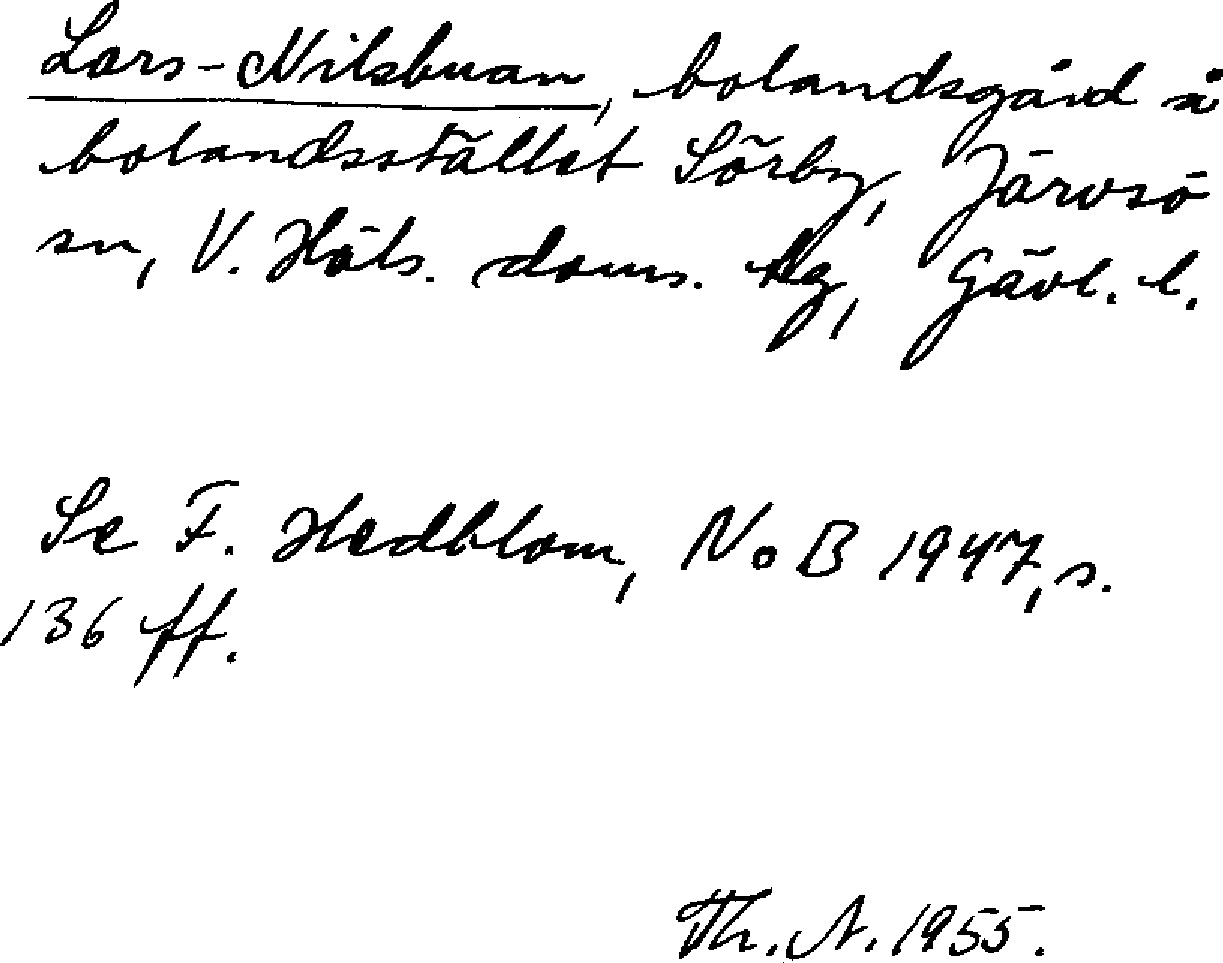 Lars-Nilsbuan, bolandsgård å
bolandsstället Sörby, Järvsö
sn, V. Häls. doms. tg, Gävl. l.
Se F. Hedblom, NoB 1947, s.
136 ff.
Th. N. 1955.